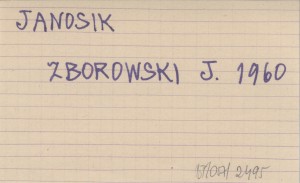 JANOSIK
ZBOROWSKI J. 1960
2495